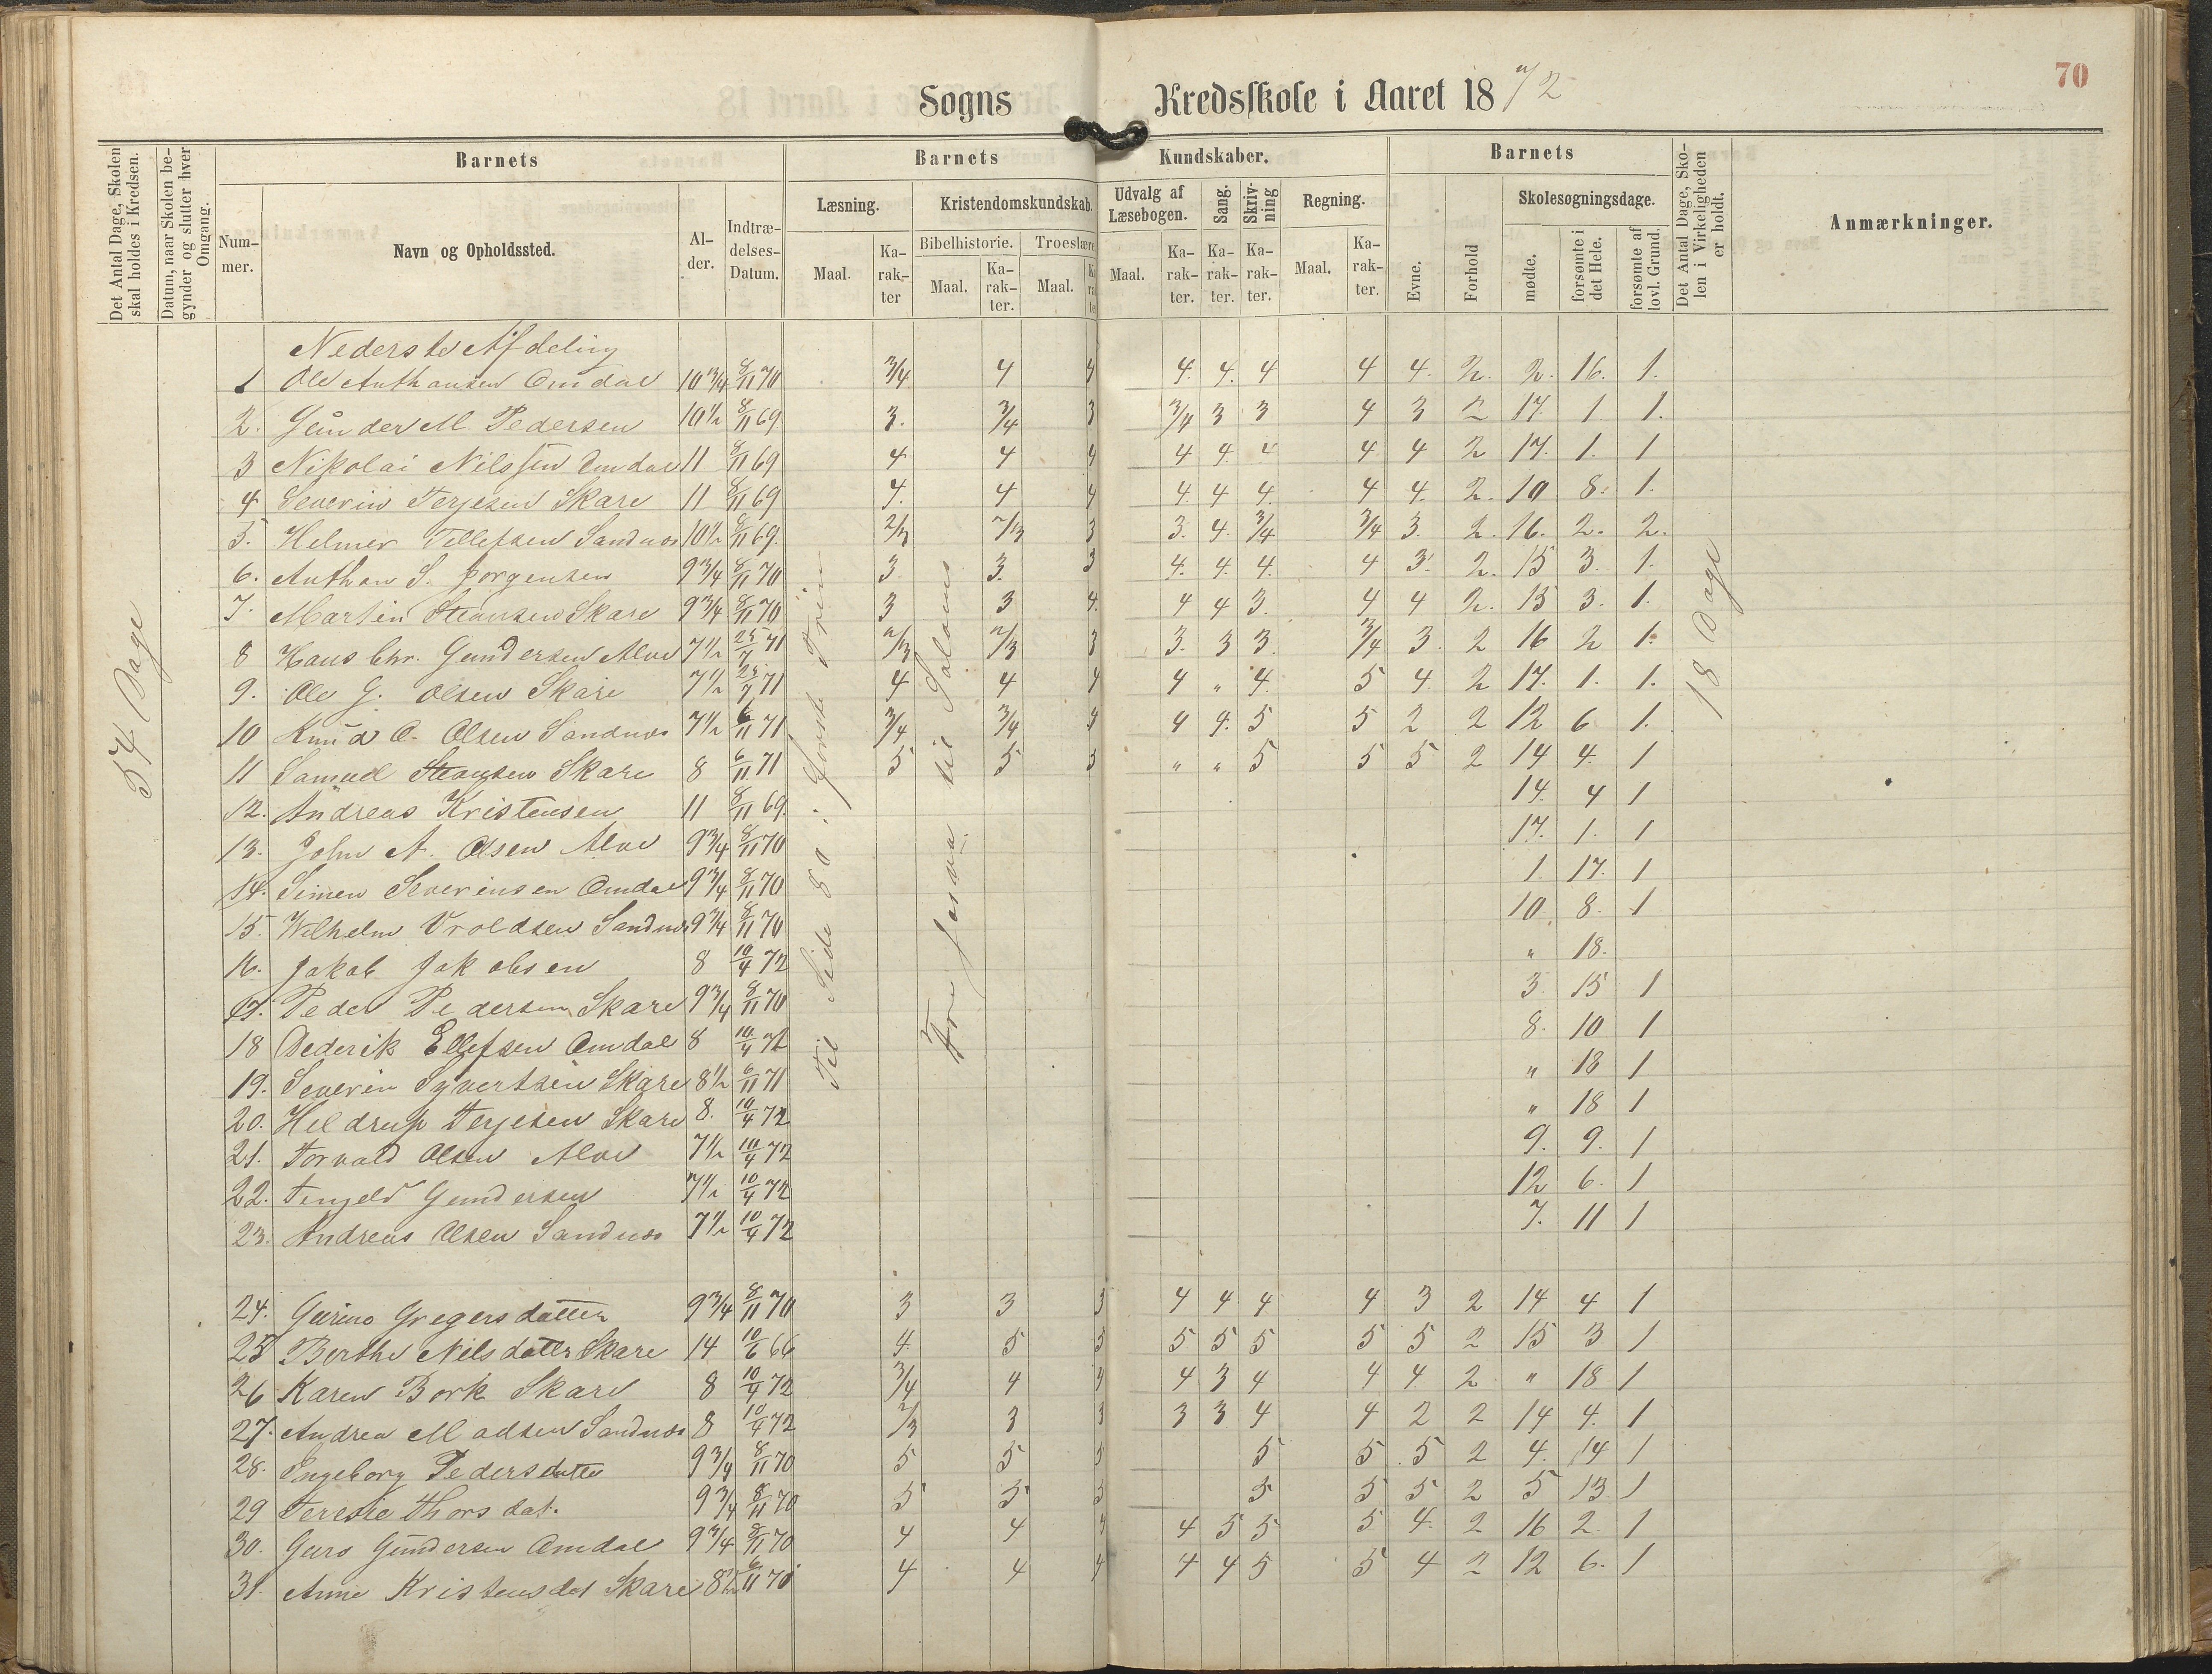 70
Sogns Kredsskole i Aaret 18 71/2
Det Antal Dage, Skolen skal holdes i Kredsen.
Datum, naar Skolen begynder og slutter hver Omgang.
Barnets
Num-mer.
Navn og Opholdssted.
Al-der.
Indtræ-delses-Datum.
Barnets Kundskaber.
Læsning.
Kristendomskundskab.
Udvalg af Læsebogen.
Sang.
Skriv-ning
Regning.
Bibelhistorie.
Troeslære.
Maal.
Ka-rak-ter
Maal.
Ka-rak-ter.
Maal.
Maal.
Ka-rak-ter.
Ka-rak-ter.
Ka-rak-ter.
Maal.
Ka-rak-ter.
Barnets
Evne.
Forhold
Skolesøgningsdage.
mødte.
forsømte i det Hele.
forsømte af lovl. Grund.
Det Antal Dage, Skolen i Virkeligheden er holdt.
Anmærkninger.
54 Dage
Nederste Afdeling
1 Ole Anthansen Omdal 10 3/4 8/11 70 3/4 4 4 4. 4. 4 4 4. 2. 2. 16. 1.
2. Gunder M. Pedersen 10 1/2 8/11 69 3. 3/4 3 3/4 3 3 4 3 2 17. 1 1.
3 Nikolai Nilssen Omdal 11 8/11 69 4 4 4 4 4. 4 4 4 2 17. 1. 1
4 Severin Terjesen Skare 11 8/11 69 4. 4 4 4. 4 4. 4 4. 2. 10 8. 1.
5. Helmer Tellefsen Sandnæs 10 1/2 8/11 69. 2/3 2/3 3 3. 4. 3/4 3/4 3. 2. 16. 2. 2.
6. Anthon S. Jørgensen 9 3/4 8/11 70 3 3. 3 4. 4. 4. 4 3. 2. 15 3. 1.
7. Martin Steansen Skare 9 3/4 8/11 70 3 3 4. 4 4 3. 4 4 2. 15 3. 1.
8 Hans Chr. Gundersen Alve 7 1/2 25/7 71 2/3 2/3 3 3. 3 3. 3/4 3. 2 16 2 1.
9. Ole G. Olsen Skare 7 1/2 25/7 71 4 4 4 4 " 4. 5 4. 2 17. 1. 1.
10 Knud O. Olsen Sandnæs 7 1/2 6/11 71 3/4 3/4 4 4 4. 5 5 2 2 12 6 1.
11 Samuel Steansen Skare 8 6/11 71 5 5 5 " " 5 5 5 2 14 4. 1
12. Andreas Kristensen 11 8/11 69. 14. 4 1
13. John A. Olsen Alve 9 3/4 8/11 70 17. 1. 1
14. Simen Severinsen Omdal 9 3/4 8/11 70 1. 17. 1
15. Wilhelm Vroldsen Sandnæs 9 3/4 8/11 70 10 8. 1
16. Jakob Jakobsen 8 10/4 72 " 18.
17. Peder Pedersen Skare 9 3/4 8/11 70 3 15 1
18 Dederik Ellefsen Omdal 8 10/4 72 8. 10 1
19. Severin Syvertsen Skare 8 1/2 6/11 71 " 18 1
20. Heldrup Terjesen Skare 8. 10/4 72 " 18 1
21. Torvald Olsen Alve 7 1/2 10/4 72 9. 9. 1
22. Gundersen 7 1/2 10/4 72 12 6. 1
23. Andreas Olsen Sandnæs 7 1/2 10/4 72 7. 11 1
24. Gurine Gregersdatter 9 3/4 8/11 70 3 3 3 4 4 4 4 3 2 14 4 1
25 Berthe Nilsdatter Skare 14 10/6 66 4. 5 5 5 5 5 5 5 2 15 3 1
26 Karen Bork Skare 8 10/4 72 3/4 4 4 4 3 4 4 4 2 " 18 1
27. Andrea Madsen Sandnæs 8 10/4 72 2/3 3 3 3 3 4 4 2 2 14 4. 1
28. Ingeborg Pedersdatter 9 3/4 8/11 70 5 5 5 5 5 5 2 4. 14 1
29 Teresie Thorsdat. 9 3/4 8/11 70 5 5 5 5 5 5 2 5 13 1
30. Guro Gundersen Omdal 9 3/4 8/11 70 4 4 4 4 5 5 5 4. 2 16 2. 1
31. Anne Kristensdat Skare 8 1/2 6/11 70 4 4 4 4 4 5 5 4 2 12 6. 1
Til Side 80
Fra Josva til Salomo
18 Dage